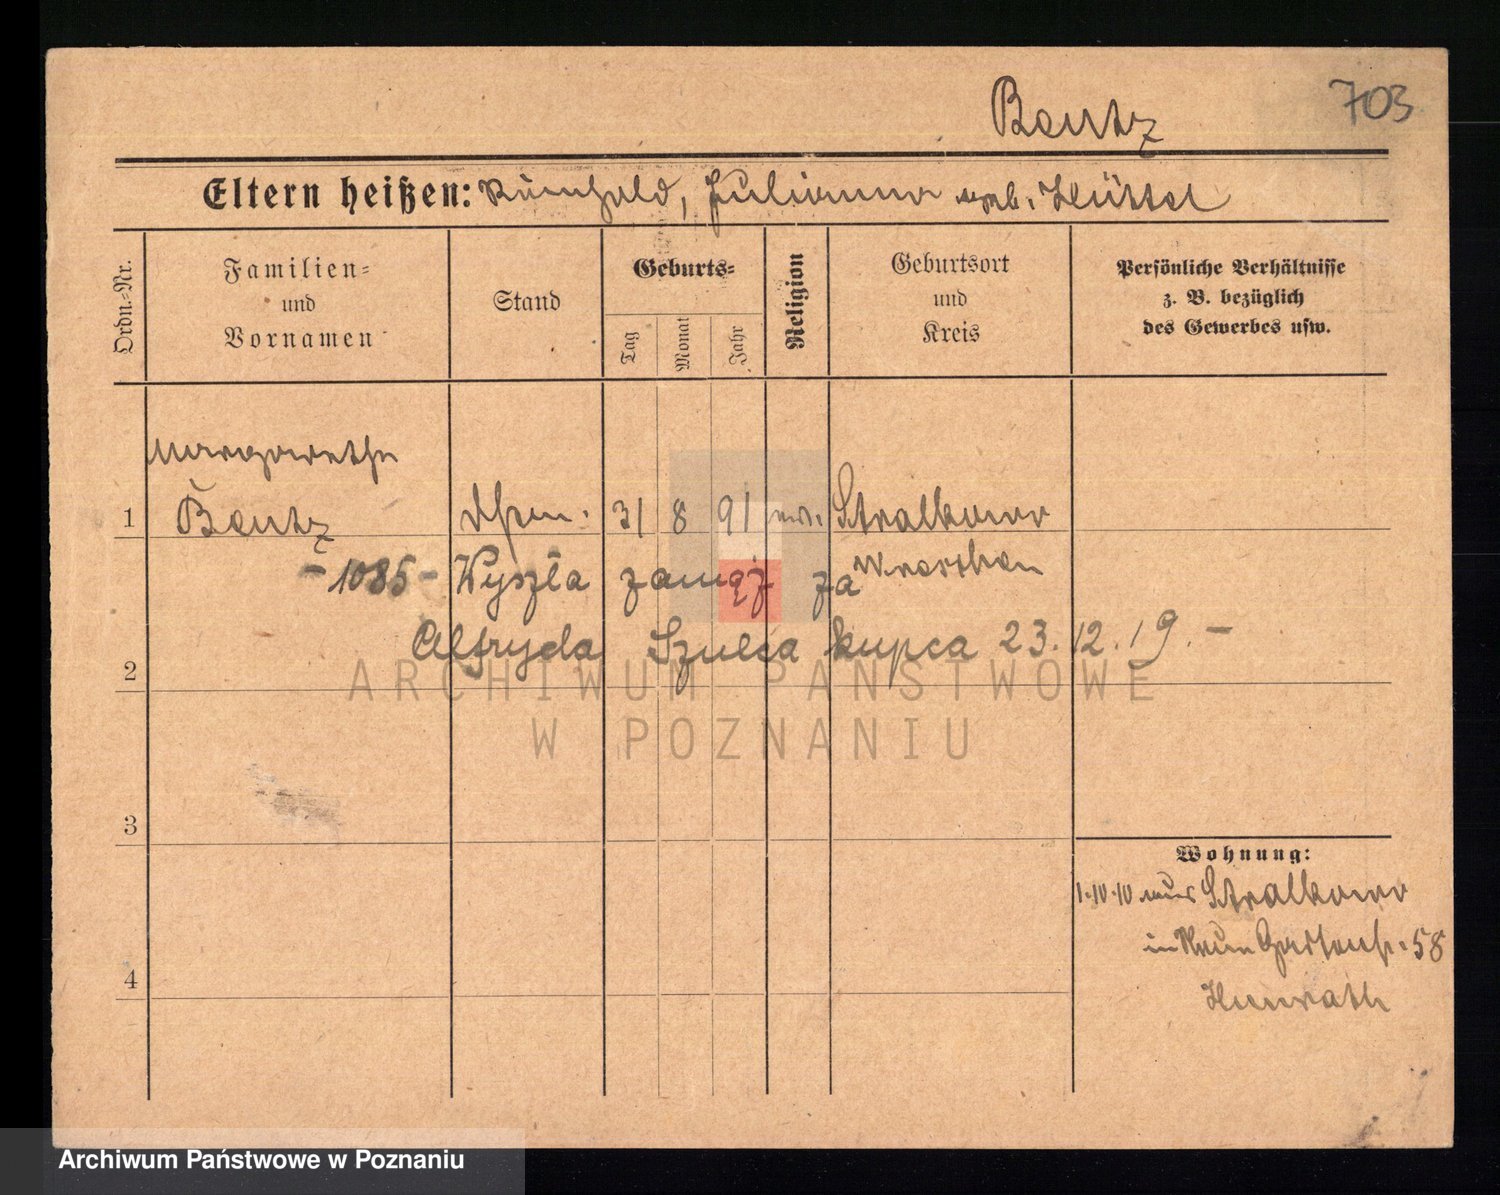 Bentz 703
Eltern heißen: Reinhold, Julianna geb. Hüttel
Ordn.-Nr.
Familien- und Vornamen
Stand
Geburts-
Tag
Monat
Jahr
Religion
Geburtsort und Kreis
Persönliche Verhältnisse z. B. bezüglich des Gewerbes usw.
Margarethe
1 Bentz 31 8 91 ev. Stralkowo
Wreschen
-1085- Wyszła zamąż za
Alfryda Szulca kupca 23.12.19. -
2
3
4
Wohnung:
1.10.10 aus Stralkowo
in Gartenstr. 58
ARCHIWUM PAŃSTWOWE
W POZNANIU
Archiwum Państwowe w Poznaniu